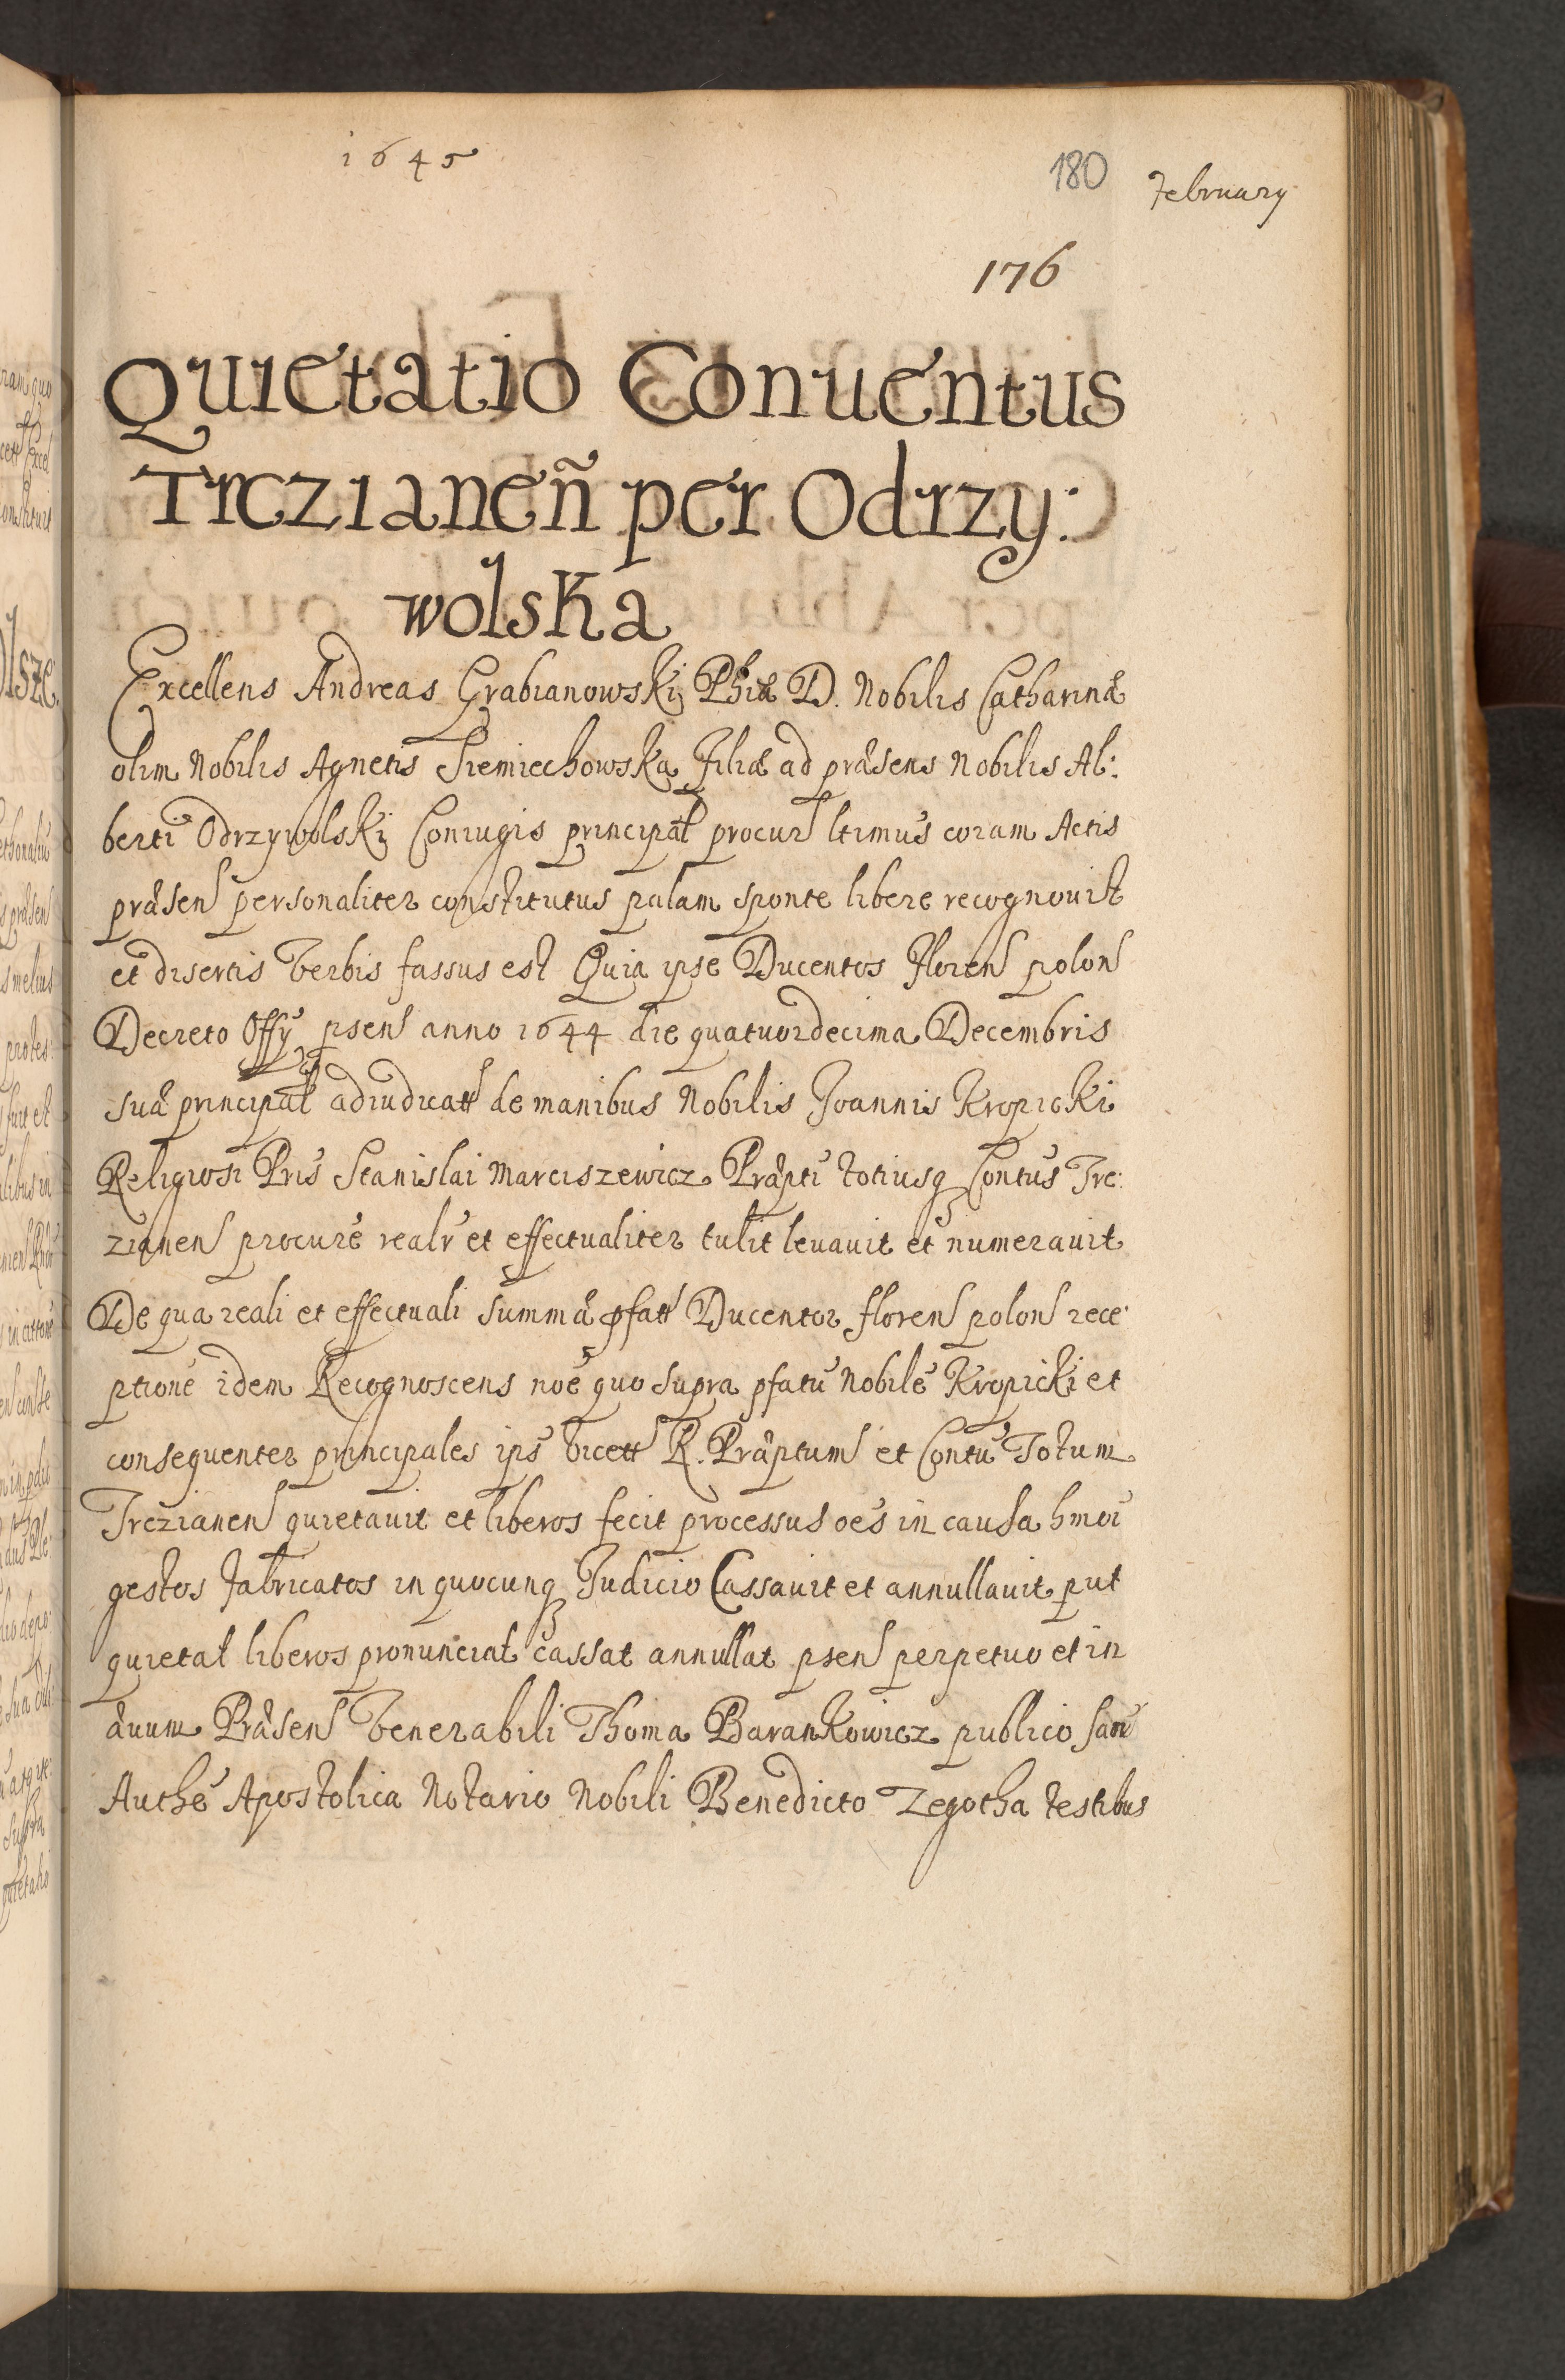 1645
180
February
176
Quietatio Conuentus
Trczianen̄ per Odrzy:
wolska
Excellens Andreas Grabianowskį Phiæ D. Nobilis Catharinæ
olim Nobilis Agnetis Siemiechowska Filiæ ad præsens Nobilis Al:
berti Odrzywolskį Coniugis principal procur ltimus coram Actis
præsen personaliter constitutus palam sponte libere recognouit
et disertis verbis fassus est Quia ipse Ducentos floren polon
Decreto Offÿ psen anno 1644 die quatuordecima Decembris
suæ principal adiudicatt de manibus Nobilis Joannis Kropicki
Religiosi Pris Stanislai Marciszewicz Præpti totiusq Contus Trc:
zianen procure realr et effectualiter tulit leuauit et numerauit
De qua reali et effectuali summæ pfatt Ducentor floren polon rece:
ptione idem Recognoscens noe quo supra pfatu Nobile Kropicki et
consequenter principales ips vicett R. Præptum et Contu Totum
Trczianen quietauit et liberos fecit processus oes in causa hmoi
gestos fabricatos in quocunq Judicio Cassauit et annullauit put
quietat liberos pronunciat cassat annullat psen perpetuo et in
æuum Præsen Venerabili Thoma Barankowicz publico san
Authe Apostolica Notario Nobili Benedicto Zegotha testibus